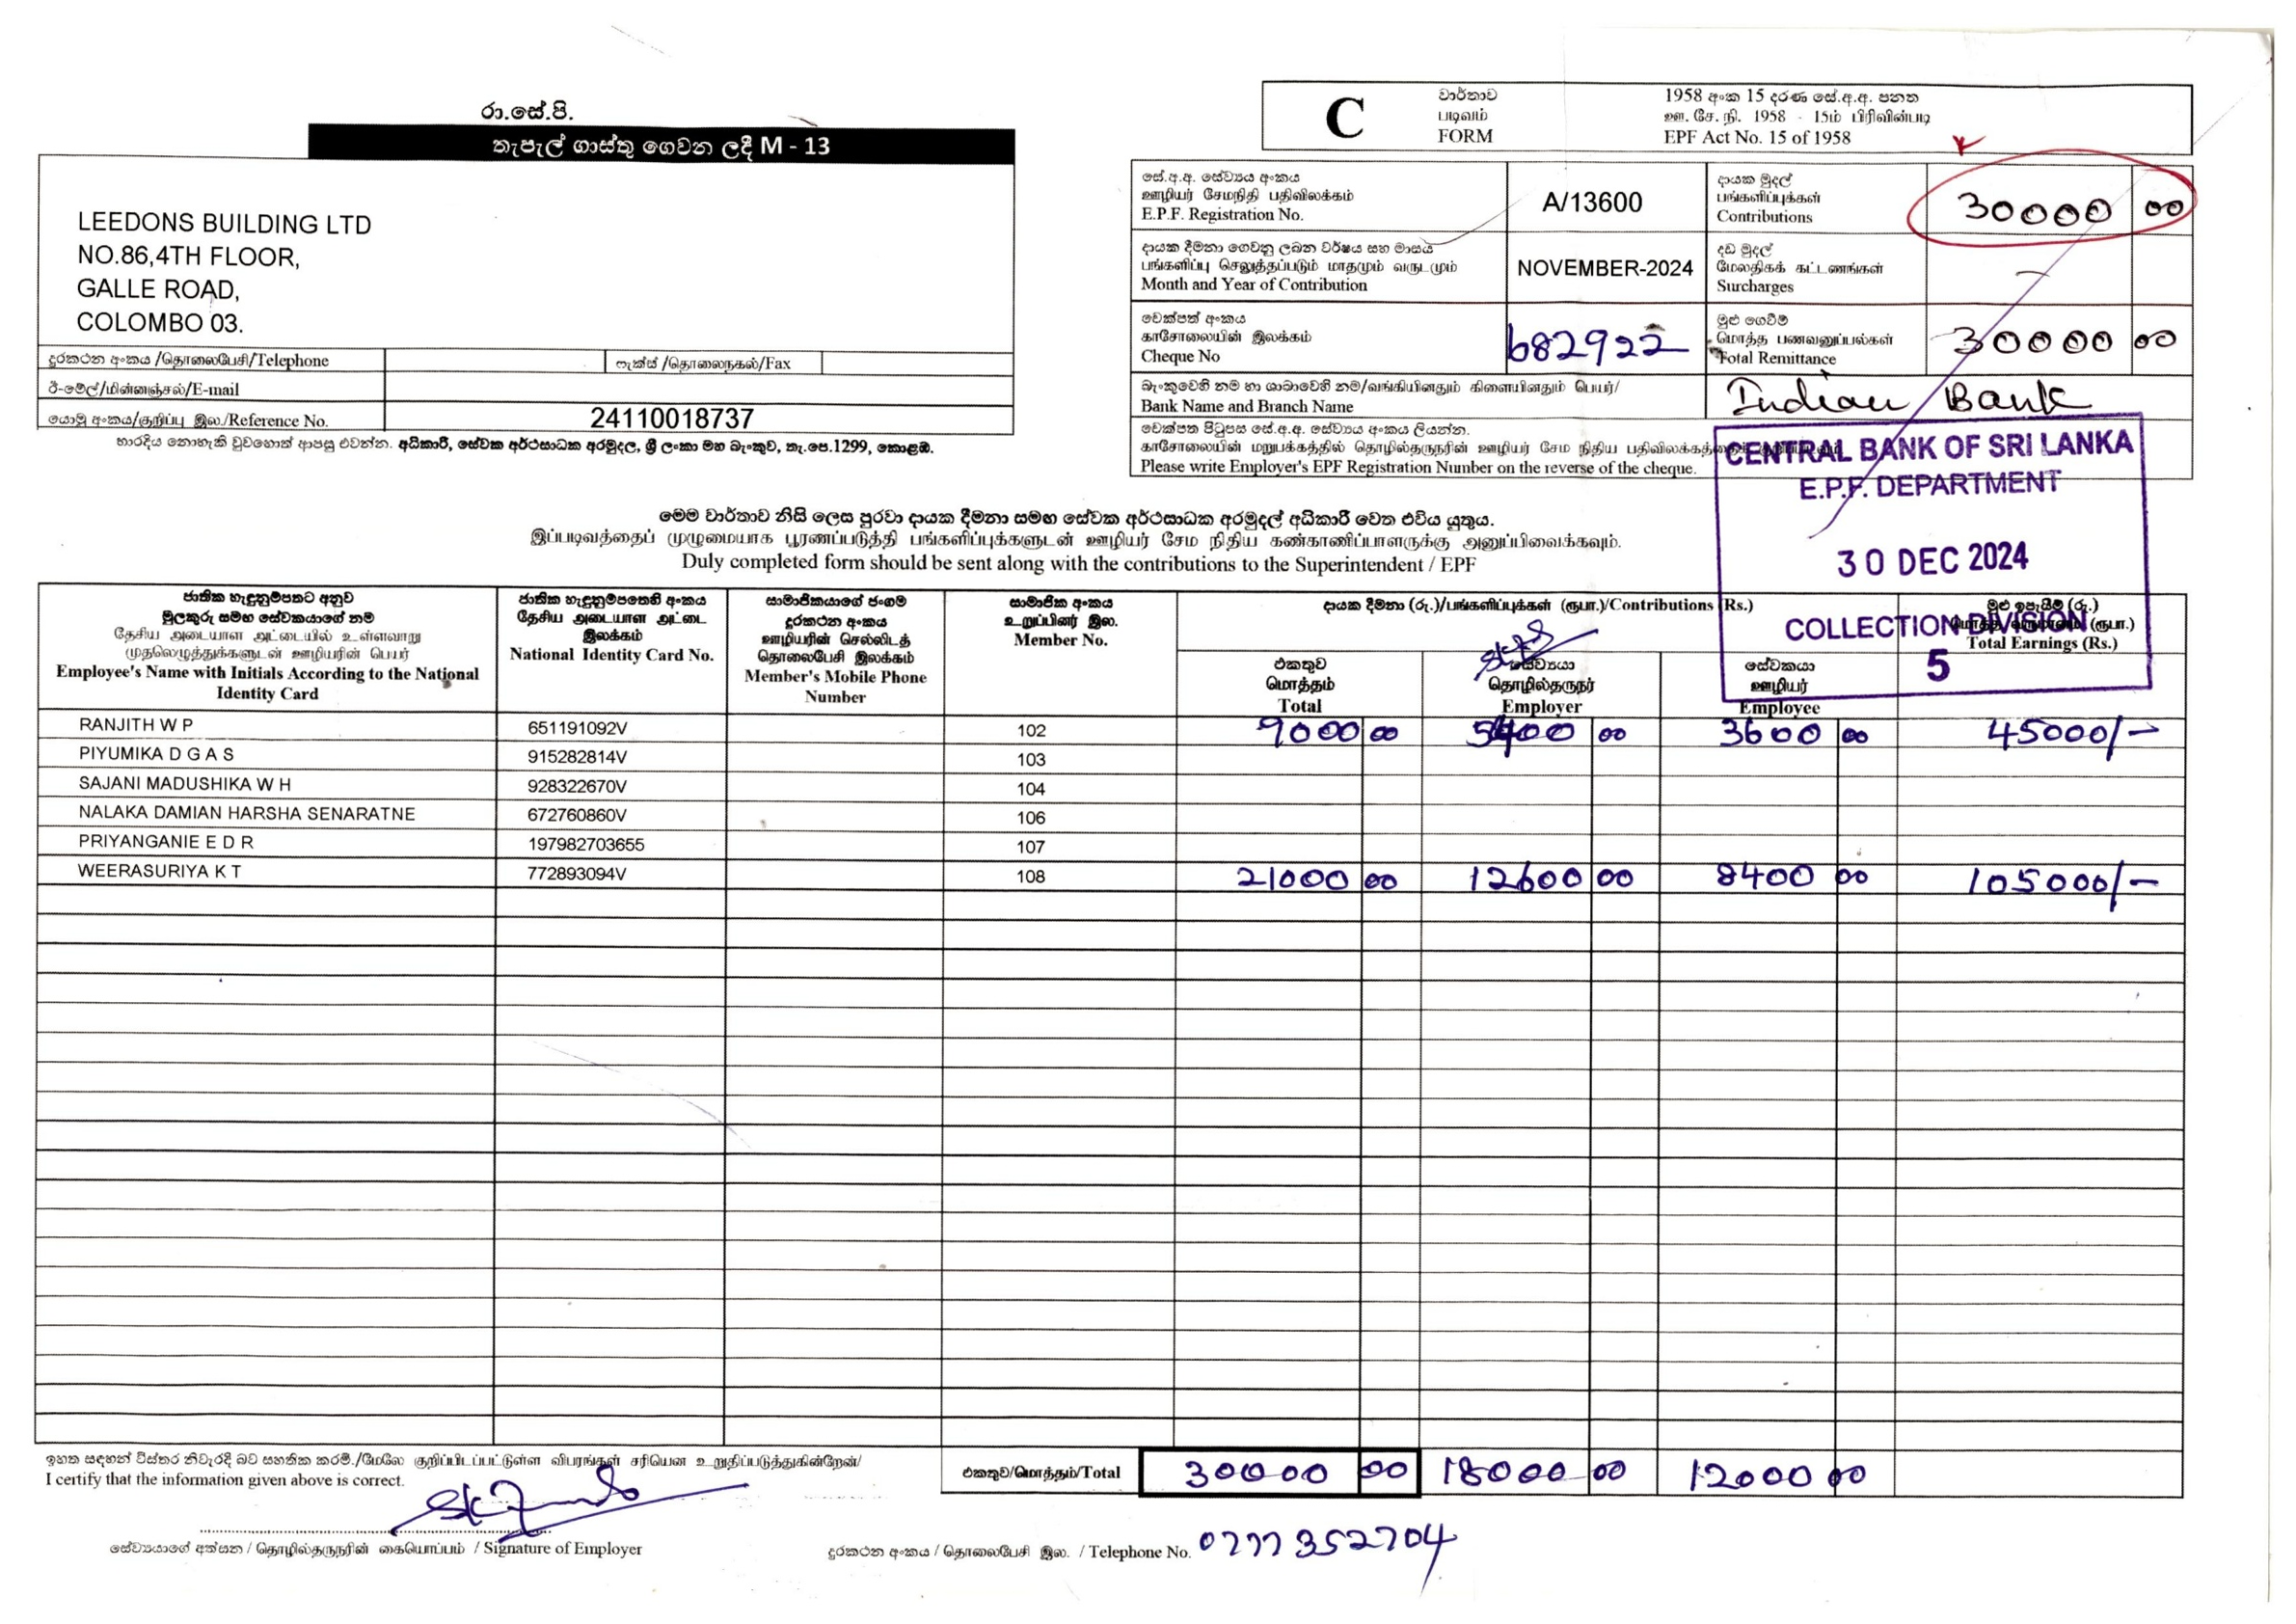 රා.සේ.පි.
තැපැල් ගාස්තු ගෙවන ලදී M - 13
LEEDONS BUILDING LTD
NO.86,4TH FLOOR,
GALLE ROAD,
COLOMBO 03.
දුරකථන අංකය /தொலைபேசி/Telephone
ෆැක්ස් /தொலைநகல்/Fax
ඊ-මේල්/மின்னஞ்சல்/E-mail
යොමු අංකය/குறிப்பு இல./Reference No. 24110018737
භාරදිය නොහැකි වුවහොත් ආපසු එවන්න. අධිකාරී, සේවක අර්ථසාධක අරමුදල, ශ්‍රී ලංකා මහ බැංකුව, තැ.පෙ.1299, කොළඹ.
C
වාර්තාව
படிவம்
FORM
1958 අංක 15 දරණ සේ.අ.අ. පනත
ஊ. சே. நி. 1958 - 15ம் பிரிவின்படி
EPF Act No. 15 of 1958
සේ.අ.අ. සේව්‍යය අංකය
ஊழியர் சேமநிதி பதிவிலக்கம்
E.P.F. Registration No.
A/13600
දායක මුදල්
பங்களிப்புக்கள்
Contributions
30000 00
දායක දීමනා ගෙවනු ලබන වර්ෂය සහ මාසය
பங்களிப்பு செலுத்தப்படும் மாதமும் வருடமும்
Month and Year of Contribution
NOVEMBER-2024
දඩ මුදල්
மேலதிகக் கட்டணங்கள்
Surcharges
—
චෙක්පත් අංකය
காசோலையின் இலக்கம்
Cheque No
682922
මුළු ගෙවීම්
மொத்த பணவனுப்பல்கள்
Total Remittance
30000 00
බැංකුවෙහි නම හා ශාඛාවෙහි නම/வங்கியினதும் கிளையினதும் பெயர்/
Bank Name and Branch Name
Indian Bank
චෙක්පත පිටුපස සේ.අ.අ. සේව්‍යය අංකය ලියන්න.
காசோலையின் மறுபக்கத்தில் தொழில்தருநரின் ஊழியர் சேம நிதிய பதிவிலக்கத்தை
Please write Employer's EPF Registration Number on the reverse of the cheque.
CENTRAL BANK OF SRI LANKA
E.P.F. DEPARTMENT
30 DEC 2024
COLLECTION DIVISION
5
මෙම වාර්තාව නිසි ලෙස පුරවා දායක දීමනා සමඟ සේවක අර්ථසාධක අරමුදල් අධිකාරී වෙත එවිය යුතුය.
இப்படிவத்தைப் முழுமையாக பூரணப்படுத்தி பங்களிப்புக்களுடன் ஊழியர் சேம நிதிய கண்காணிப்பாளருக்கு அனுப்பிவைக்கவும்.
Duly completed form should be sent along with the contributions to the Superintendent / EPF
ජාතික හැඳුනුම්පතට අනුව
මුලකුරු සමඟ සේවකයාගේ නම
தேசிய அடையாள அட்டையில் உள்ளவாறு
முதலெழுத்துக்களுடன் ஊழியரின் பெயர்
Employee's Name with Initials According to the National
Identity Card
ජාතික හැඳුනුම්පතෙහි අංකය
தேசிய அடையாள அட்டை
இலக்கம்
National Identity Card No.
සාමාජිකයාගේ ජංගම
දුරකථන අංකය
ஊழியரின் செல்லிடத்
தொலைபேசி இலக்கம்
Member's Mobile Phone
Number
සාමාජික අංකය
உறுப்பினர் இல.
Member No.
දායක දීමනා (රු.)/பங்களிப்புக்கள் (ரூபா.)/Contributions (Rs.)
එකතුව
மொத்தம்
Total
සේව්‍යයා
தொழில்தருநர்
Employer
සේවකයා
ஊழியர்
Employee
මුළු ඉපැයීම් (රු.)
(ரூபா.)
Total Earnings (Rs.)
RANJITH W P 651191092V 102 9000 00 5400 00 3600 00 45000/-
PIYUMIKA D G A S 915282814V 103
SAJANI MADUSHIKA W H 928322670V 104
NALAKA DAMIAN HARSHA SENARATNE 672760860V 106
PRIYANGANIE E D R 197982703655 107
WEERASURIYA K T 772893094V 108 21000 00 12600 00 8400 00 105000/-
ඉහත සඳහන් විස්තර නිවැරදි බව සහතික කරමි./மேலே குறிப்பிடப்பட்டுள்ள விபரங்கள் சரியென உறுதிப்படுத்துகின்றேன்/
I certify that the information given above is correct.
එකතුව/மொத்தம்/Total 30000 00 18000 00 12000 00
සේව්‍යයාගේ අත්සන / தொழில்தருநரின் கையொப்பம் / Signature of Employer
දුරකථන අංකය / தொலைபேசி இல. / Telephone No. 0777352704